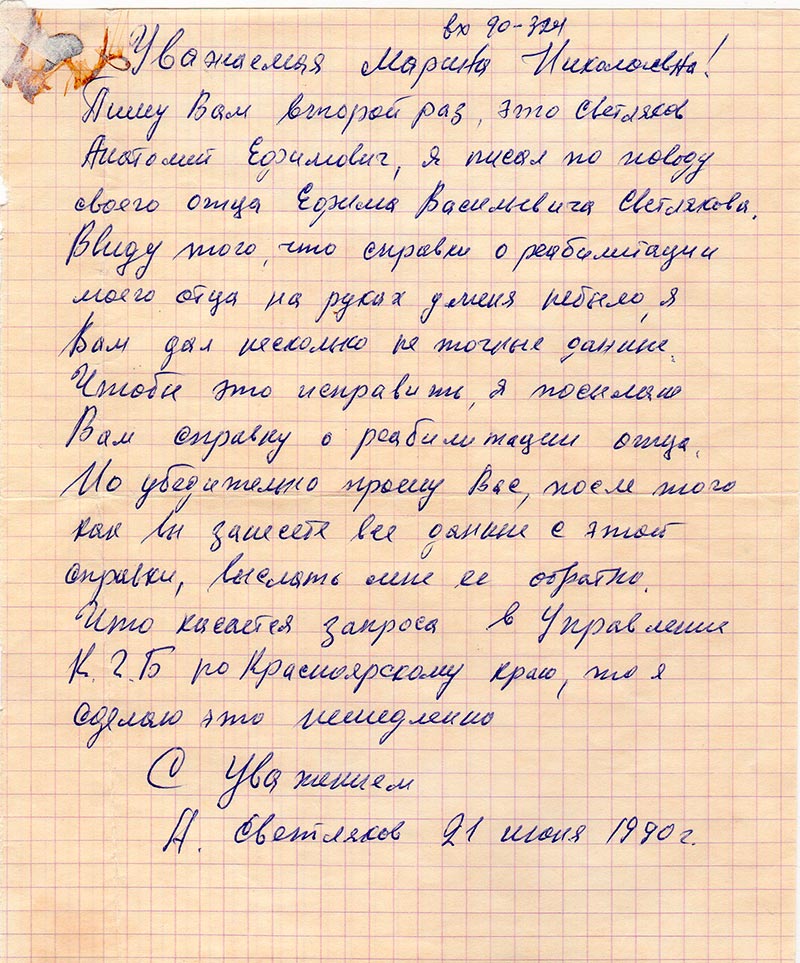 вх 90-324
Уважаемая Марина Николаевна!
Пишу Вам второй раз, это Светляков
Анатолий Ефимович, я писал по поводу
своего отца Ефима Васильевича Светлякова.
Ввиду того, что справки о реабилитации
моего отца на руках у меня небыло, я
Вам дал несколько не точные данные.
Чтобы это исправить, я посылаю
Вам справку о реабилитации отца.
Но убедительно прошу Вас, после того
как вы занесете все данные с этой
справки, выслать мне ее обратно.
Что касается запроса в Управление
К.Г.Б по Красноярскому краю, то я
сделаю это немедленно
С Уважением
А. Светляков 21 июня 1990 г.